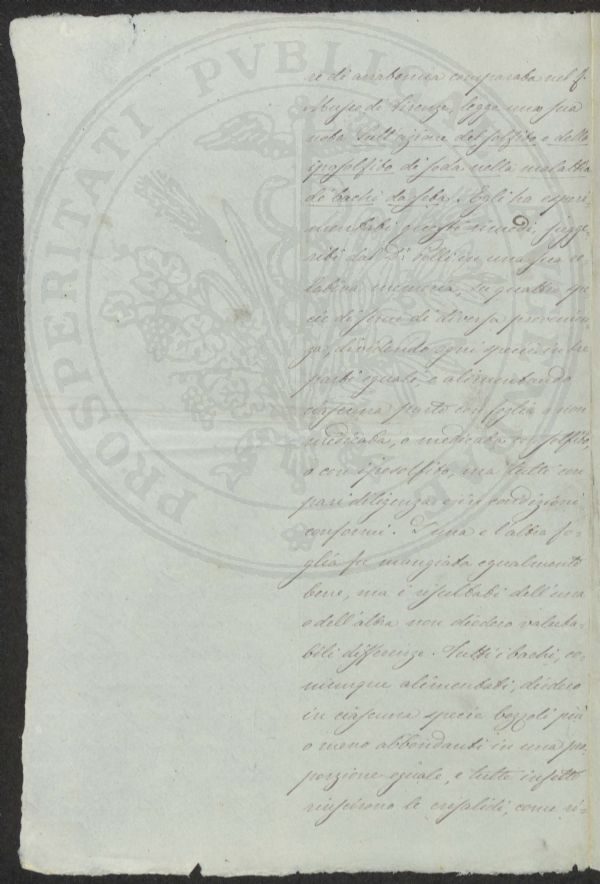 PROSPERITATI PVBLICAE
re di arabonia comparata nel
di Firenze, legge una sua
nota sull'azione del solfito e dello
iposolfito di soda nella malattia
de' bachi da seta. Egli ha speri-
mentati questi rimedi, sugge-
riti dal Dr. Polli in una sua re-
lativa memoria, su quattro spe-
cie di seme di diversa provenien-
za, dividendo ogni specie in tre
parti eguali, e alimentando
ciascuna parte con foglia non
medicata, o medicata con solfito,
o con iposolfito, ma tutte con
pari diligenza e in condizioni
conformi. L'una e l'altra fo-
glia fu mangiata egualmente
bene, ma i resultati dell'una
e dell'altra non diedero valuta-
bili differenze. Tutti i bachi, co-
munque alimentati, diedero
in ciascuna specie bozzoli più
o meno abbondanti in una pro-
porzione eguale, e tutte infette
riuscirono le crisalidi, come ri-